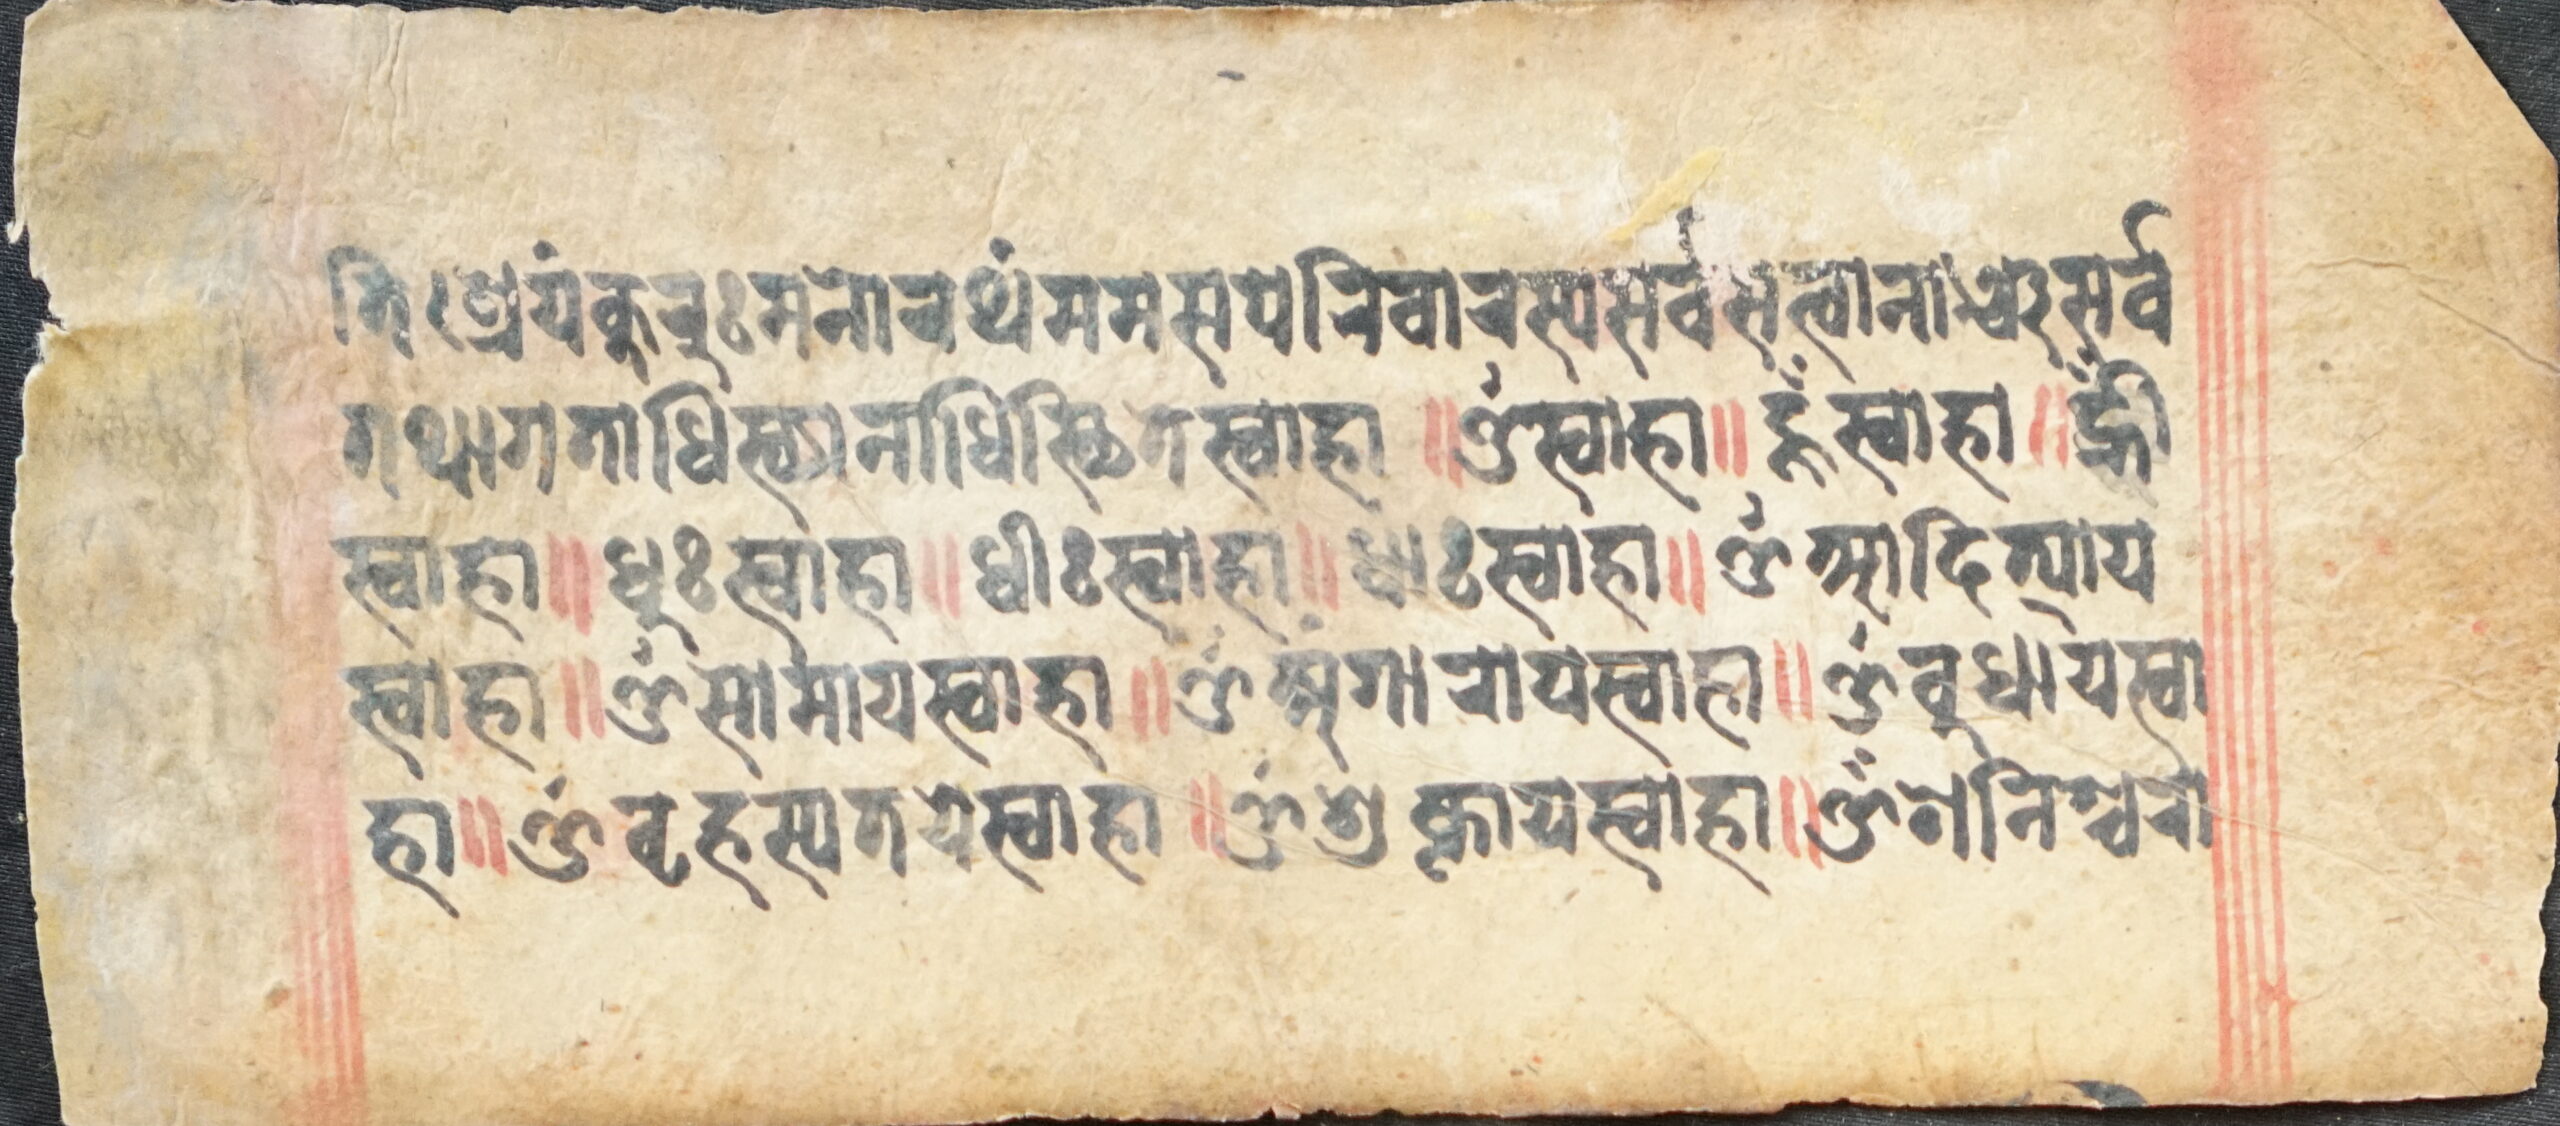 तिःश्रेयंकुरुः मनोरथंममसपरिवारस्यसर्वसत्वानाञ्चसर्व
तथागताधिस्थानाधिस्थितस्वाहा ॥ ॐस्वाहा ॥ हूँस्वाहा ॥ ह्रीँ
स्वाहा ॥ धुःस्वाहा ॥ धीःस्वाहा ॥ धाःस्वाहा ॥ ॐआदित्याय
स्वाहा ॥ ॐसोमायस्वाहा ॥ ॐअंगारायस्वाहा ॥ ॐबुधायस्वा
हा ॥ ॐबृहस्पतयेस्वाहा ॥ ॐशुक्रायस्वाहा ॥ ॐशनिश्चरा